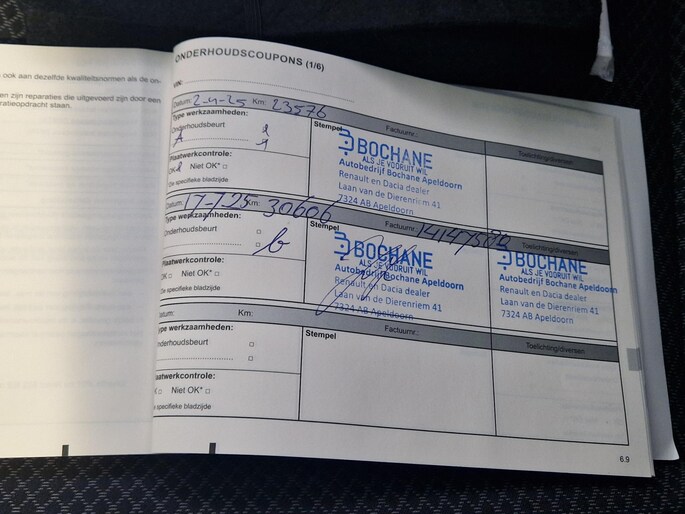 ook aan dezelfde kwaliteitsnormen als de on-
en zijn reparaties die uitgevoerd zijn door een
ratieopdracht staan.
ONDERHOUDSCOUPONS (1/6)
VIN:
Datum: 2-4-25 Km: 23576
Type werkzaamheden:
Onderhoudsbeurt
A
Plaatwerkcontrole:
OK Niet OK* □
De specifieke bladzijde
Stempel
Factuurnr.:
Toelichting/diversen
BOCHANE
ALS JE VOORUIT WIL
Autobedrijf Bochane Apeldoorn
Renault en Dacia dealer
Laan van de Dierenriem 41
7324 AB Apeldoorn
Datum: 17-7-25 Km: 30606
Type werkzaamheden:
Onderhoudsbeurt □
□ b
Plaatwerkcontrole:
OK □ Niet OK* □
De specifieke bladzijde
Stempel
Factuurnr.:
Toelichting/diversen
BOCHANE
ALS JE VOORUIT WIL
Autobedrijf Bochane Apeldoorn
Renault en Dacia dealer
Laan van de Dierenriem 41
7324 AB Apeldoorn
BOCHANE
ALS JE VOORUIT WIL
Autobedrijf Bochane Apeldoorn
Renault en Dacia dealer
Laan van de Dierenriem 41
7324 AB Apeldoorn
Datum: Km:
Type werkzaamheden:
Onderhoudsbeurt □
□
Plaatwerkcontrole:
K □ Niet OK* □
e specifieke bladzijde
Stempel
Factuurnr.:
Toelichting/diversen
6.9